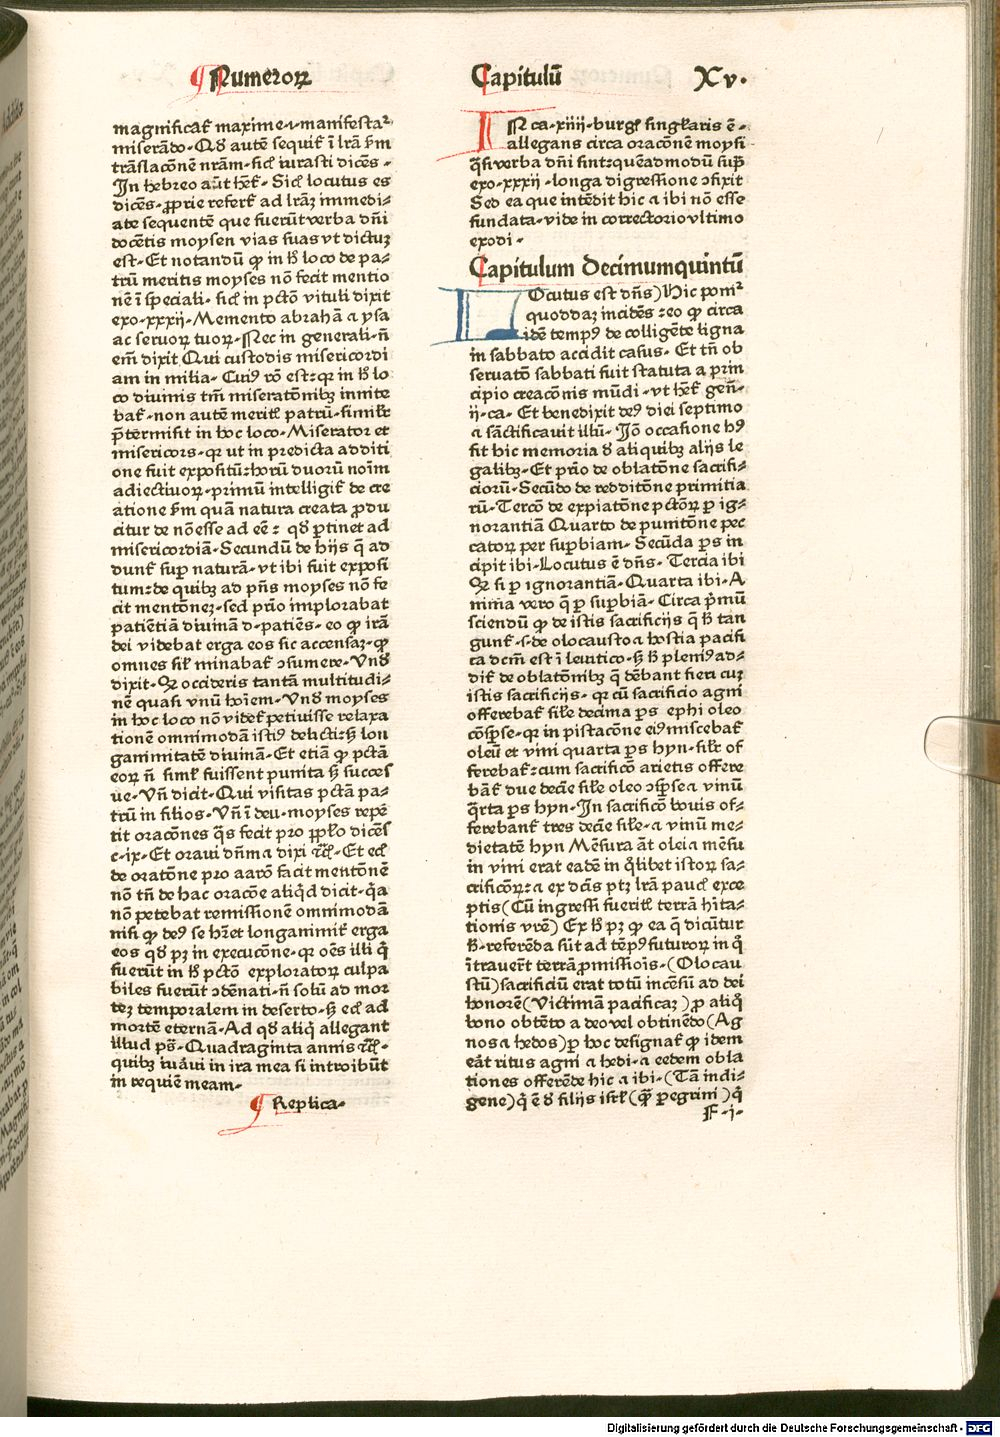 ¶ Numeroꝝ Capitulū Xv.
magnificat᷑ maxime ⁊ manifestaᷣ
miserādo. Qđ autē sequit᷑ ī lr̄a ẜm
trāslacōnē nrām. sic̄ iurasti dicēs.
In hebreo aūt hēt᷑. Sic̄ locutus es
dicēs. ꝓprie refert᷑ ad lrāꝫ immedi⸗
ate sequentē que fuerūt verba dn̄i
docētis moysen vias suas vt dictuꝫ
est. Et notandū ꝙ in hͦ loco de pa⸗
trū meritis moyses nō fecit mentio
nē ī speciali. sic̄ in pctō vituli dixit
exo. xxxij. Memento abrahā ⁊ ysa
ac seruoꝝ tuoꝝ. Nec in generali. n̄
em̄ dixit Qui custodis misericordi
am in milia. Cuiꝰ rō est: qꝛ in hͦ lo
co diuinis tm̄ miseratonibꝫ innite
bat᷑. non autē merit᷑ patrū. simil̄r
p̄termisit in hoc loco. Miserator et
misericors. qꝛ ut in predicta additi
one fuit expositū: horū duorū noīm
adiectiuoꝝ. primū intelligit᷑ de cre
atione ẜm quā natura creata ꝓdu
citur de nō esse ad eē: qđ ꝑtinet ad
misericordiā. Secundū de hijs q̄ ad
dunt᷑ suꝑ naturā. vt ibi fuit exposi
tum: de quibꝫ ad pn̄s moyses nō fe
cit mentōneꝫ. sed prīo implorabat
patiētiā diuinā ꝺ. patiēs. eo ꝙ irā
dei videbat erga eos sic accensaꝫ. ꝙ
omnes sil̄ minabat᷑ ↄsumere. Vnđ
dixit. Qꝛ occideris tantā multitudi⸗
nē quasi vnū hoīem. Vnđ moyses
in hoc loco nō videt᷑ petiuisse relaxa
tionē omnimodā istiꝰ delicti: sꝫ lon
ganimitatē diuinā. Et etiā ꝙ pctā
eoꝝ n̄ siml̄ fuissent punita sꝫ succes
ue. Vn̄ dicit. Qui visitas pctā pa⸗
trū in filios. Vn̄ ī deu. moyses repē
tit oracōnes q̄s fecit pro ppl̄o dicēs
c. ix. Et oraui dn̄m ⁊ dixi ⁊c̄. Et ec̄
de oratōne pro aarō facit mentōnē
nō tn̄ de hac oracōe aliqͥd dicit. qͥa
nō petebat remissionē omnimodā
nisi ꝙ deꝰ se hr̄et longanimit᷑ erga
eos qđ pꝫ in execucōne. qꝛ oēs illi qͥ
fuerūt in hͦ pctō exploratoꝝ culpa
biles fuerūt ↄdēnati. n̄ solū ad mor
teꝫ temporalem in deserto. sꝫ ec̄ ad
mortē eternā. Ad qđ aliqͥ allegant
illud ps̄. Quadraginta annis ⁊c̄.
quibꝫ iuraui in ira mea si introibūt
in requiē meam.
¶ Replica.
IN ca. xiiij. burg᷑. singl᷑aris ē.
allegans circa oracōnē moysi
q̄ si verba dn̄i sint: quēadmodū suꝑ
exo. xxxij. longa digressione ↄfixit
Sed ea que intēdit hic ⁊ ibi nō esse
fundata. vide in correctorio vltimo
exodi.
Capitulum Decimumquintū
LOcutus est dn̄s) Hic ponit᷑
quoddaꝫ incidēs: eo ꝙ circa
idē tempꝰ de colligēte ligna
in sabbato accidit casus. Et tn̄ ob
seruatō sabbati fuit statuta a prin
cipio creacōnis mūdi. vt hēt᷑ gen̄.
ij. ca. Et benedixit deꝰ diei septimo
⁊ sāctificauit illū. Iō occasione hꝰ
fit hic memoria đ aliquibꝫ alijs le
galibꝫ. Et prīo de oblatōne sacrifi⸗
ciorū. Secūdo de redditōne primitia
rū. Tercō de expiatōne pctōꝝ ꝑ ig⸗
norantiā Quarto de punitōne pec
catoꝝ per suꝑbiam. Secūda ps̄ in
cipit ibi. Locutus ē dn̄s. Tercia ibi
Qꝛ si ꝑ ignorantiā. Quarta ibi. A
nima vero q̄ ꝑ suꝑbiā. Circa p̄mū
sciendū ꝙ de istis sacrificijs q̄ hͨ tan
gunt᷑. s. de olocausto ⁊ hostia pacifi
ca dcm̄ est ī leuitico. sꝫ hͨ pleniꝰ ad⸗
dit᷑ de oblatōnibꝫ q̄ dēbant fieri cuꝫ
istis sacrificijs. qꝛ cū sacrificio agni
offerebat᷑ sil̄e decima ps̄ ephi oleo
cōsꝑse. qꝛ in pistacōne eiꝰ miscebat᷑
oleū et vini quarta ps̄ hyn. sil̄r of
ferebat᷑: cum sacrificō arietis offere
bāt᷑ due decīe sil̄e oleo ↄsꝑse ⁊ vinū
q̄rta ps̄ hyn. In sacrificō bouis of⸗
ferebant᷑ tres decīe sil̄e. ⁊ vinū me⸗
dietatē hyn Mēsura āt olei ⁊ mēsu
in vini erat eadē in qͣlibet istoꝝ sa⸗
crificōꝝ: ⁊ ex dc̄is ptꝫ lr̄a pauc̄ exce
ptis (Cū ingressi fuerit᷑ terrā hīta⸗
tionis vrē) Ex hͦ pꝫ ꝙ ea q̄ dicūtur
hͨ. referēda sūt ad tēpꝰ futuroꝝ in qͦ
ītrauer̄t terrā ꝓmissiōis. (Olocau
stū) sacrificiū erat totū incēsū ad dei
honorē (Victimā pacificaꝫ) ꝓ aliqͦ
bono obtēto a deo vel obtinēdo (Ag
nos ⁊ hedos) ꝑ hoc designat᷑ ꝙ idem
erāt ritus agni ⁊ hedi. ⁊ eedem obla
tiones offerēde hic ⁊ ibi. (Tā indi⸗
gene) qͥ ē đ filijs isrl̄ (q̄ꝫ ꝑegrini) qͥ
F. i.
Digitalisierung gefördert durch die Deutsche Forschungsgemeinschaft - DFG